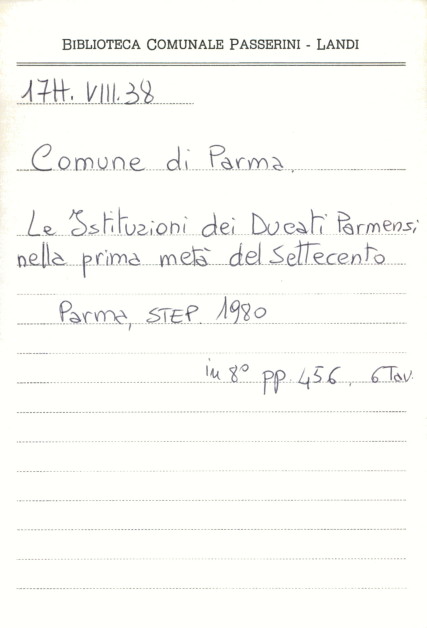 BIBLIOTECA COMUNALE PASSERINI - LANDI
17H. VIII.38
Comune di Parma.
Le Istituzioni dei Ducati Parmensi
nella prima metà del Settecento
Parma, STEP. 1980
in 8° pp. 456. 6 Tav.